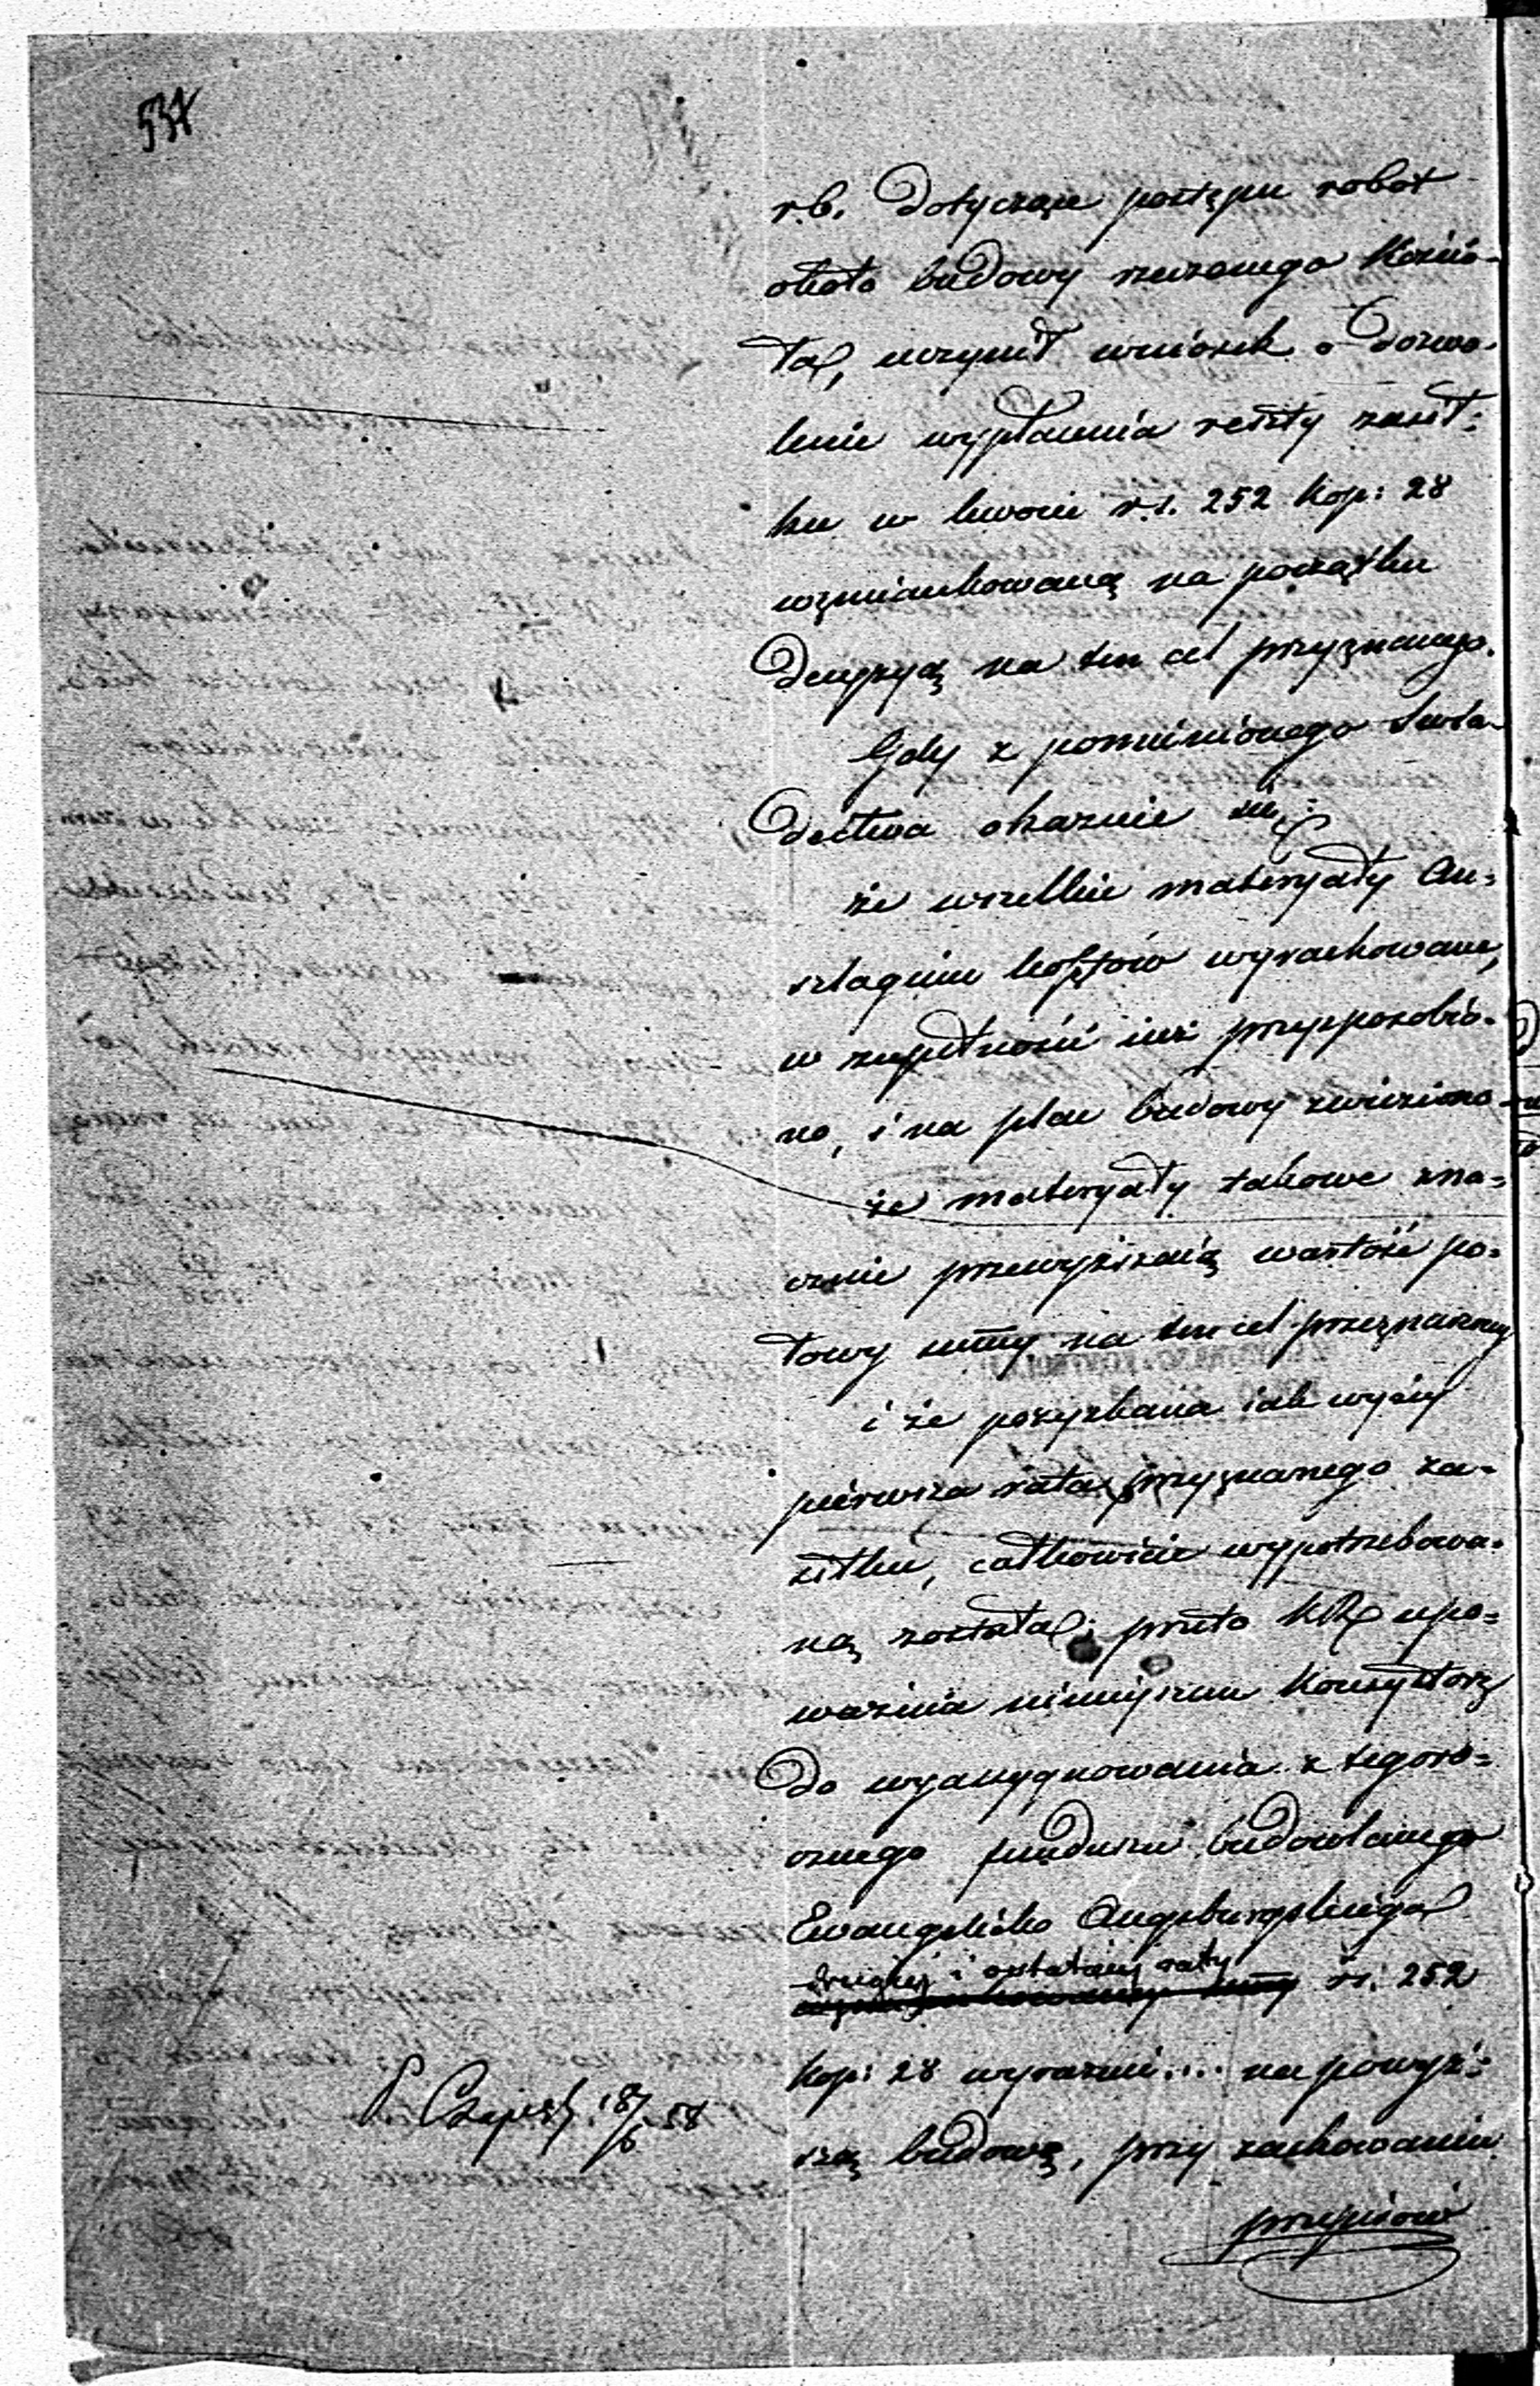 537
r.b. dotyczące postępu robot
około budowy rzeczonego Kościo-
ła, uczynił wniosek o dozwo-
lenie wypłacenia reszty zasił:
ku w kwocie r.s. 252 kop: 28
wzmiankowaną na początku
decyzyą na ten cel przyznanego.
Gdy z pomienionego świa-
dectwa okazuie się:
że wszelkie materyały An-
szlagiem kosztów wyrachowane,
w zupełności iuż przysposobio-
no, i na plac budowy zwieziono
że materyały takowe zna-
cznie przewyższaią wartość po-
łowy summy na ten cel przeznaczonej
i że pozyskana iak wyżej
pierwsza rata przyznanego za-
siłku, całkowicie wypotrzebowa-
ną została; przeto KR upo-
ważnia ninieyszem Konsystorz
do wyassygnowania z tegoro-
cznego funduszu budowlanego
Ewangelicko Augsburgskiego
drugiej i ostatniej raty rs. 252
kop: 28 wyraźnie... na powyż-
szą budowę, przy zachowaniu
przepisów